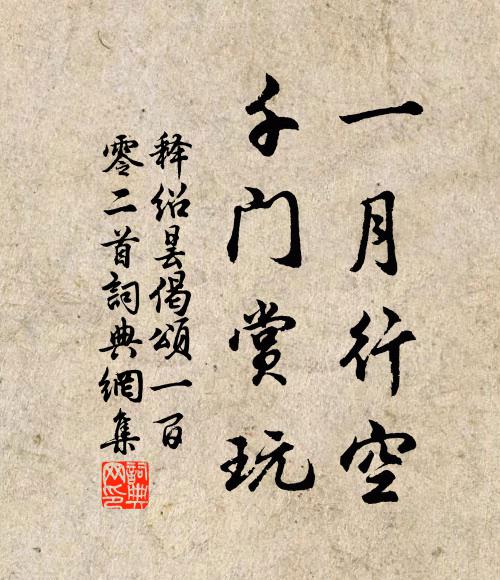 一月行空
千门赏玩
释绍昙偈頌一百
零二首詞典網集
詞典
网印